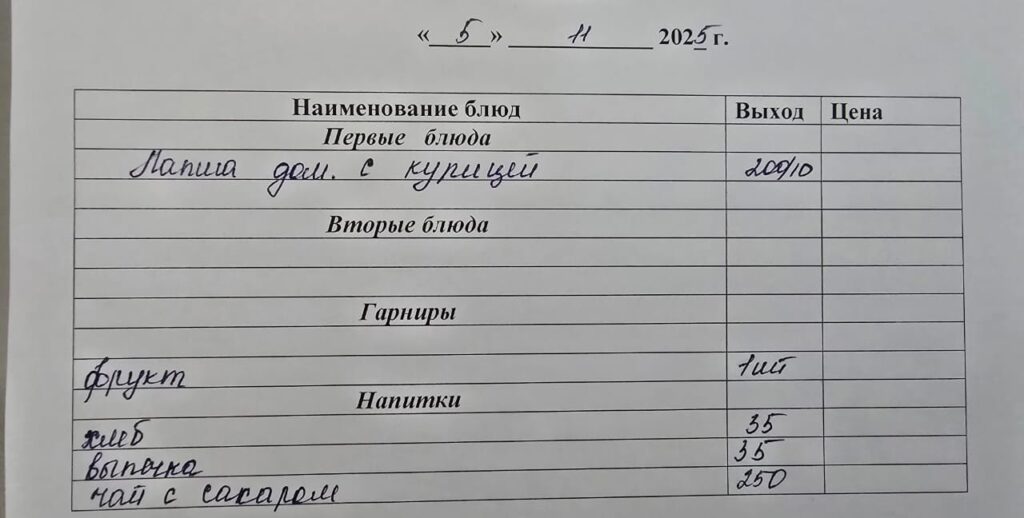 « 5 » 11 2025 г.
Наименование блюд Выход Цена
Первые блюда
Лапша дом. с курицей 200/10
Вторые блюда
Гарниры
фрукт 1шт
Напитки
хлеб 35
выпечка 35
чай с сахаром 250